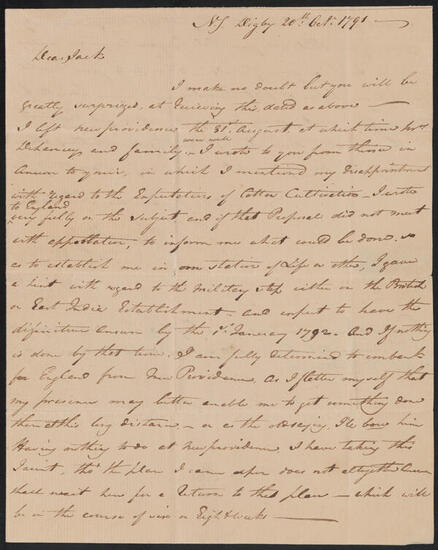 NS Digby 20th Octr. 1791
Dear Jack
I make no doubt but you will be
greatly surprized, at Viewing the date as above
I left New providence the 31st. August at which time Mrs
Dehaney and family were well I wrote to you from thence in
Answer to yours, in which I mentioned my Disappointment
with regard to the Expectations of Cotton Cultivation I wrote
to England
very fully on the Subject and if that Proposal did not meet
with approbation, to inform me what could be done so
as to establish me in some station of Life or other, I gave
a hint with regard to the Military Step either on the British
or East India Establishment and expect to have the
difinitive Answer by the 1st January 1792. And If nothing
is done by that time. I am fully determined to embark
for England from New Providence, as I flatter myself that
my presence may better enable me to get something done
than at this long distance, or as the old saying,
Having nothing to do at New providence I have taking this
Jaunt, tho the plan I am upon does not altogether
shall wait here for a Return to that place which will
be in the course of six or Eight weeks